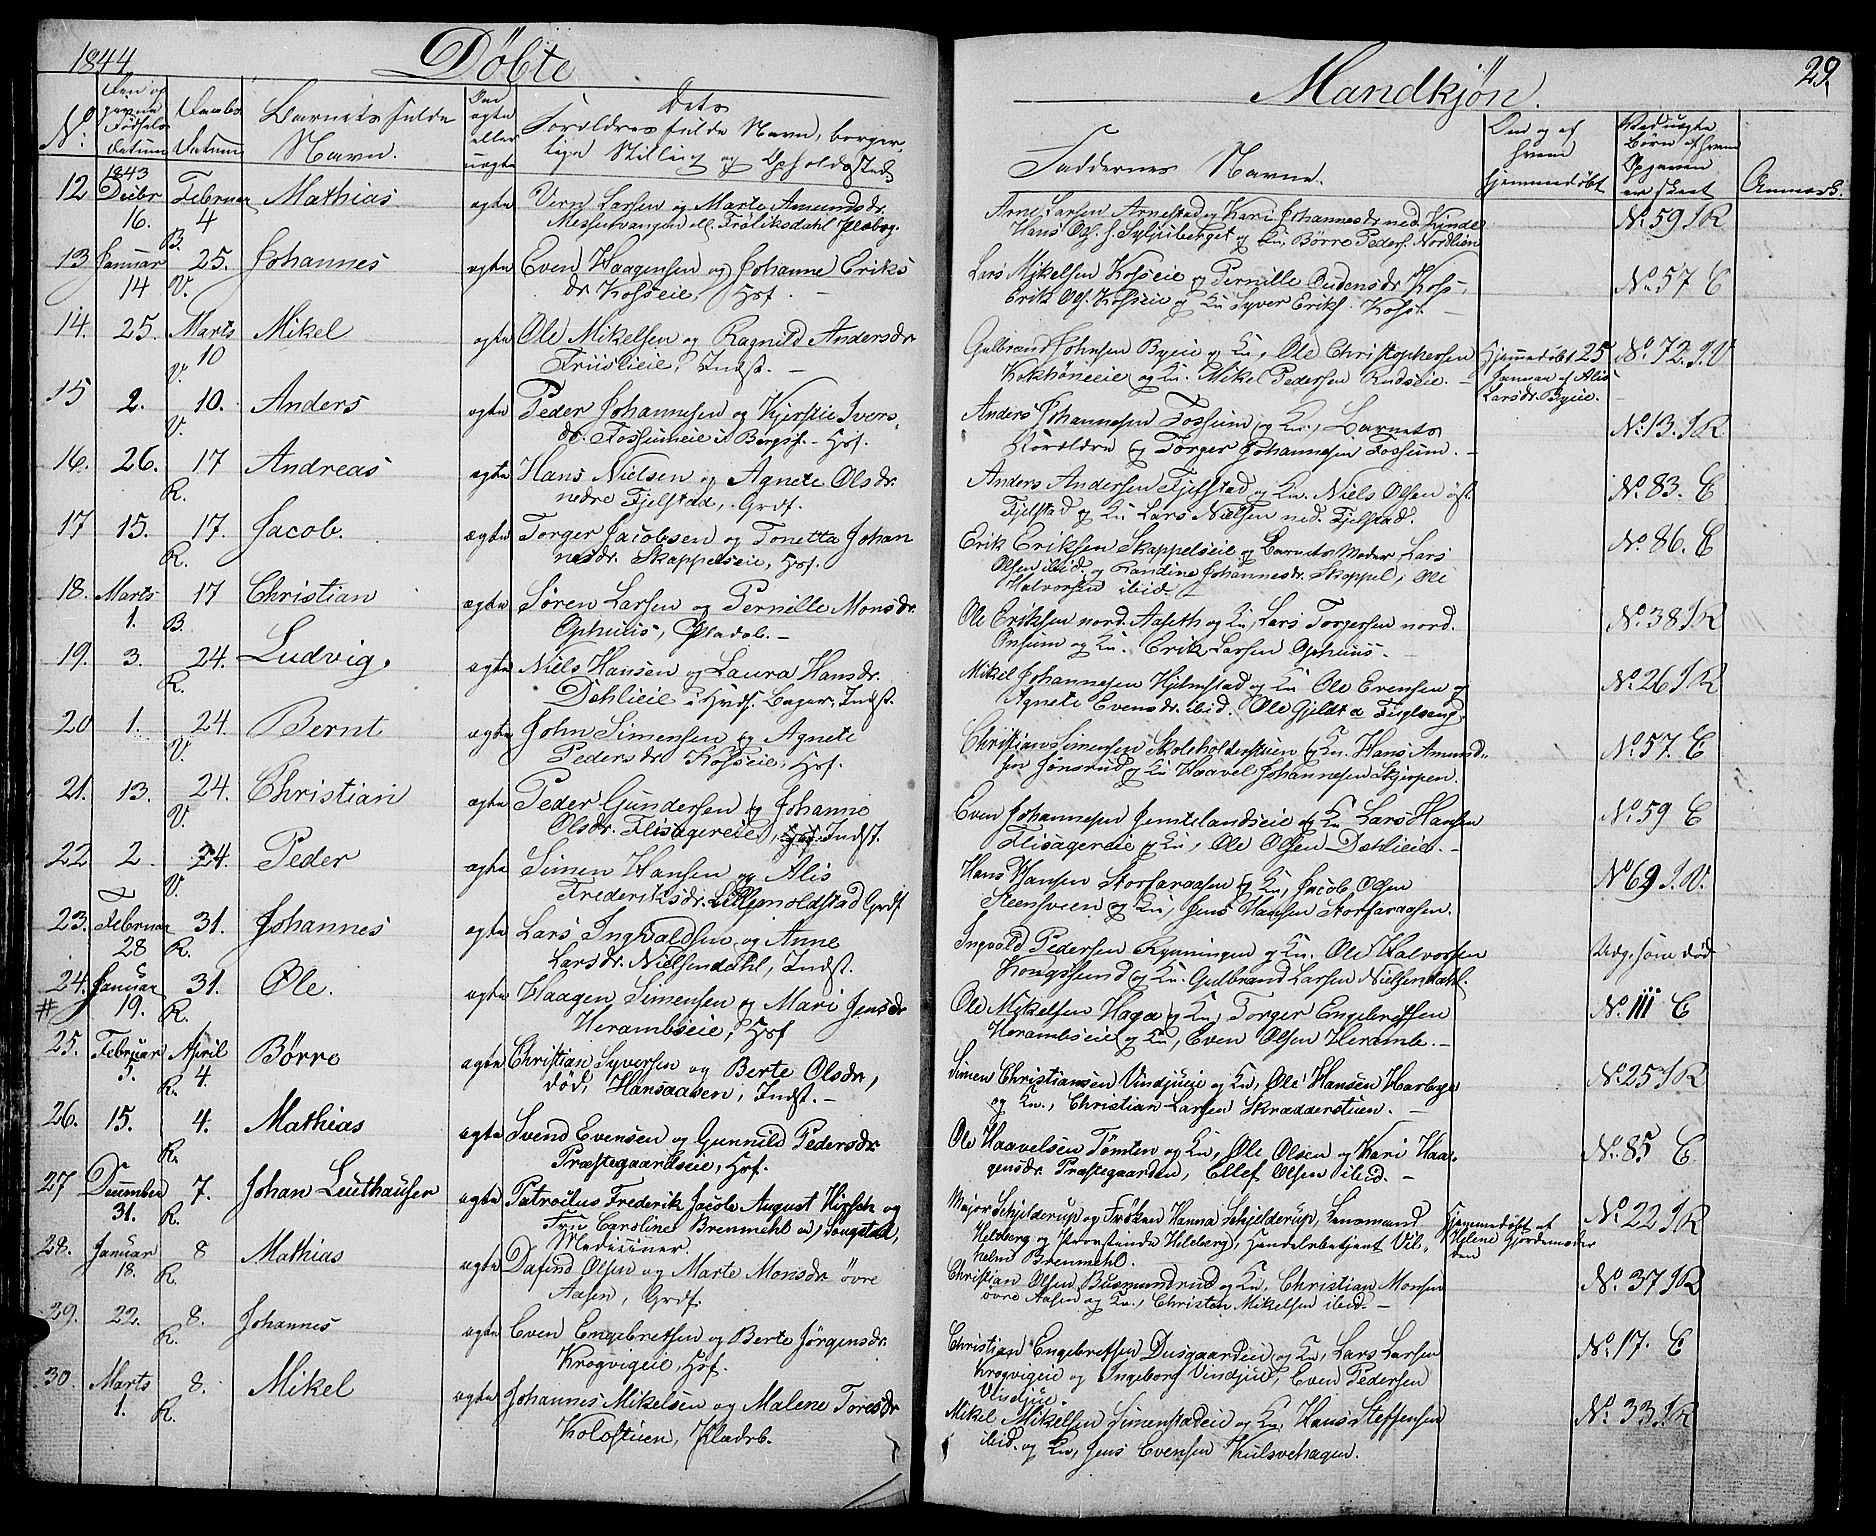 1844
Döbte
Mandkjön.
29.
No.
Den opgivne Födsels datum
Daabs Datum
Barnets fulde Navn.
Om ægte eller uægte
Dets Forældres fulde Navn, borgerlige Stilling og Opholdssted
Faddernes Navne.
Om og af hvem hjemmedöbt
Ved uægte Börn af hvem Opgaven er skeet
Anmærk.
12 1843 Decbr 16. Februar 4 B. Mathias ægte Larsen og Marte Amundsdr.
Messenvangen ell. Fröliksdahl
Arne Larsen Arnestad og Kari Johannesdr. ned. Kinde
Hans Ols. og Kn, Börre Peders. Nordlien
No. 59 J R
13 Januar 14 25. V. Johannes ægte Even Haagensen og Johanne Eriks
dr. Kofseie, Hsf. –
Lars Mikelsen Kofseie og Pernille Oudensdr. Kofs,
Erik Ols. Kofseie og Kn Syver Eriks. Kofs. –
No. 57 E
14. 25. Marts 10 V. Mikel ægte Ole Mikelsen og Ragnild Andersdr.
Friislieie, Indst. –
Gulbrand Johnsen Byeie og Kn, Ole Christophersen
Kokhöneeie og Kn. Mikel Pedersen Rudseie. –
Hjemmedöbt 25 Januar af Alis Larsdr. Byeie.
No. 72. J. V
15 2. 10. V. Anders ægte Peder Johannesen og Kjerstie Ivers
dr. Fossumeie i Bergsf. – Hsf.
Anders Johannesen Fossum og Kn., Barnets
Forældre og Torger Johannesen Fossum. –
No. 13. J R
16. 26. 17 R. Andreas ægte Hans Nielsen og Agnete Olsdr.
nedre Fjelstad, Grdf.
Anders Andersen Fjelstad og Kn. Niels Olsen öst.
Fjelstad og Kn Lars Nielsen ned. Fjelstad.
No. 83. E
17 15. 17. R. Jacob. ægte Torger Jacobsen og Tonetta Johan
nesdr. Skappelseie, Hsf.
Erik Eriksen Skappelseie og Barnets Moder, Lars
Olsen ibid. og Randine Johannesdr. Skappel, Ole
Halvorsen ibid.
No. 86. E
18. Marts 1. 17 B. Christian ægte Sören Larsen og Pernille Monsdr.
Ophuus, –
Ole Eriksen nord. Aaseth og Kn, Lars Torgersen nord.
Onsum og Kn. Erik Larsen Ophuus. –
No. 38 J R
19. 3. 24. R. Ludvig. ægte Niels Hansen og Laura Hansdr.
Dehlieie i Hrds. Bager, Indst.
Mikel Johannesen Hjelmstad og Kn Ole Evensen og
Agnete Evensdr. ibid. Ole Fuglseng.
No. 26 J R
20 1. 24. V. Bernt ægte John Simensen og Agnete
Pedersdr. Kofseie, Hsf.
Christian Simensen Skoleholderstuen og Kn. Hans Amund
sen Jönsrud og Kn Haavel Johannesen Skjerpen.
No. 57. E
21. 13. 24. V. Christian ægte Peder Gundersen og Johanne
Olsdr. Flisagereie, Indst.
Even Johannesen Jemtelandseie og Kn Lars Hansen
Flisagereie og Kn, Ole Olsen Dehlieie. –
No. 59 E
22 2 24. V. Peder ægte Simen Hansen og Alis
Frederiksdr. Grdf
Hans Hansen Storfaraasen og Kn, Jacob Olsen
Steensveen og Kn, Jens Hansen Storfaraasen.
No 69 J. V.
23. Februar 28 31. R. Johannes ægte Lars Ingvaldsen og Anne
Larsdr. Nielsendahl, Indst.
Ingvold Pedersen Rynningen og Kn. Ole Halvorsen
Kongssund og Kn. Gulbrand Larsen Nielsendahl.
Udg. som död
24. # Januar 19. 31. R. Ole. ægte Haagen Simensen og Mari Jensdr
Herambseie, Hsf
Ole Mikelsen Haga og Kn, Torger Engebretsen
Herambseie og Kn, Even Olsen Heramb. –
No. 111 E
25. Februar 5. April 4. R. Börre ægte Christian Syversen og Berte Olsdr,
död, Hansaasen, Indst. –
Simen Christiansen Vindjueie og Kn, Ole Hansen Harbye
og Kn., Christian Larsen Skrædderstuen. –
No. 25 J R
26. 15. 4. R. Mathias ægte Svend Evensen og Gunnild Pedersdr.
Præstegaardseie, Hsf.
Ole Haavelsen Tömten og Kn, Ole Olsen og Kari Haa
gensdr. Præstegaarden, Ellef Olsen ibid. –
No. 85 E
27 December 31. 7. R. Johan Leuthäuser ægte Patroclus Frederik Jacob August Hirsch og
Fru Caroline Brenmehl Songstad,
Mediciner.
Major Schjelderup og Fröken Hanna Schjelderup, Lensmand
Heldberg og Provstinde Heldberg, Handelsbetjent Vil
helm Brenmehl.
Hjemmedöbt af Helene Gjordemoder
No. 22 J R
28. Januar 18. 8 R. Mathias ægte Dafind Olsen og Marte Monsdr. övre
Aasen, Grdf.
Christian Olsen Busmundrud og Kn. Christian Monsen
övre Aasen og Kn., Christen Mikelsen ibid. –
No. 37 J R
29. 22. 8. R. Johannes ægte Even Engebretsen og Berte Jörgensdr.
Krogvigeie, Hsf.
Christian Engebretsen Dusgaardeie og Kn, Lars Larsen
Krogvigeie og Ingeborg Vindjue, Even Pedersen
Vindjue.
No. 17. E
30. Marts 1. 8. R. Mikel ægte Johannes Mikelsen og Malene Toresdr
Kolostuen, Pladsb.
Mikel Mikelsen Simenstadeie og Kn. Hans Steffensen
ibid. og Kn, Jens Evensen Kulsvehagen.
No. 33 J R